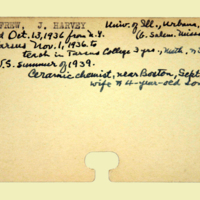 FREW, J. HARVEY
Univ. of Ill., Urbana,
d Oct. 13, 1936 from N.Y.
arsus Nov. 1, 1936 to
teach in Tarsus College 3 yrs.,
U.S. summer of 1939.
Ceramic chemist, near Boston, Sept
wife & 4-year-old son